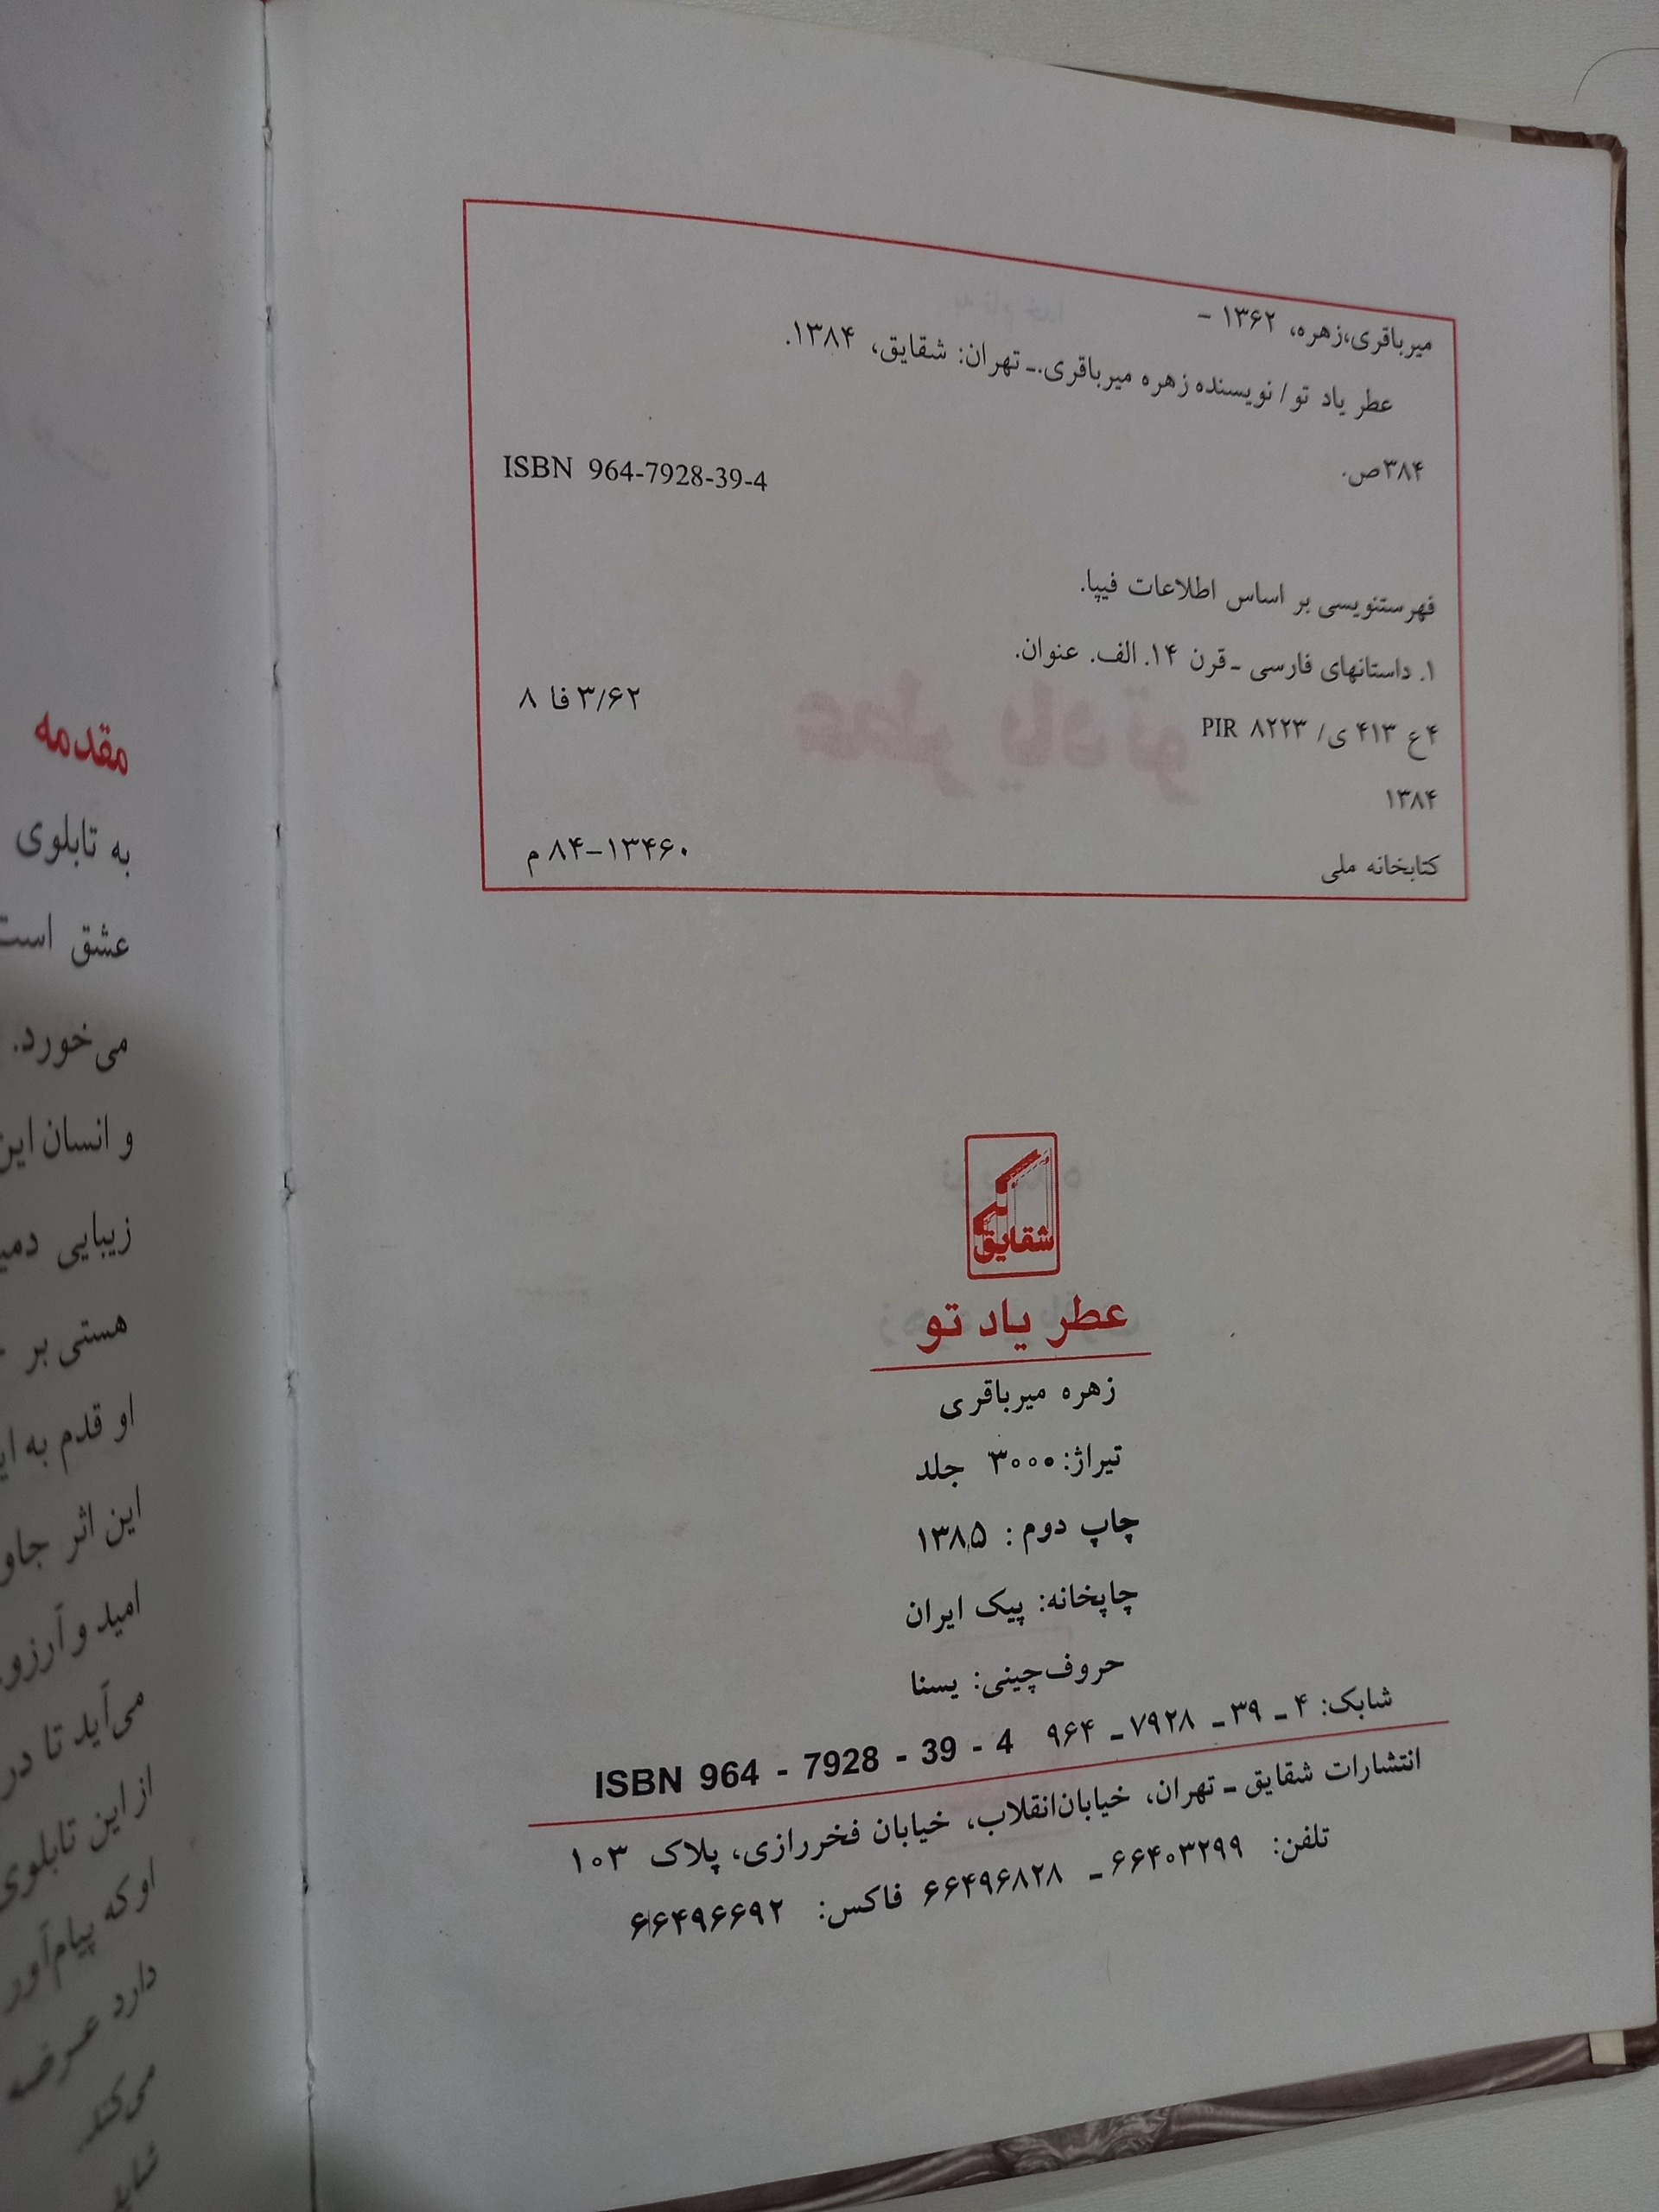 میرباقری،زهره، ۱۳۶۲ -
عطر یاد تو / نویسنده زهره میرباقری.ـ تهران: شقایق، ۱۳۸۴.
۳۸۴ص.
ISBN 964-7928-39-4
فهرستنویسی بر اساس اطلاعات فیپا.
۱. داستانهای فارسی ـ قرن ۱۴. الف. عنوان.
۴ع ۴۱۳ ی/ ۸۲۲۳ PIR
۳/۶۲ فا ۸
۱۳۸۴
کتابخانه ملی
۱۳۴۶۰–۸۴ م
شقایق
عطر یاد تو
زهره میرباقری
تیراژ: ۳۰۰۰ جلد
چاپ دوم : ۱۳۸۵
چاپخانه: پیک ایران
حروف‌چینی: یسنا
شابک: ۴ ـ ۳۹ ـ ۷۹۲۸ ـ ۹۶۴ ISBN 964 - 7928 - 39 - 4
انتشارات شقایق ـ تهران، خیابان‌انقلاب، خیابان فخررازی، پلاک ۱۰۳
تلفن: ۶۶۴۰۳۲۹۹ ـ ۶۶۴۹۶۸۲۸ فاکس: ۶۶۴۹۶۶۹۲
مقدمه
به تابلوی
عشق است
می‌خورد.
و انسان این
زیبایی
هستی بر
او قدم به
این اثر
امید و آرزو
می‌آید تا در
از این تابلوی
او که پیام‌آور
دارد عرضه
می‌کند.